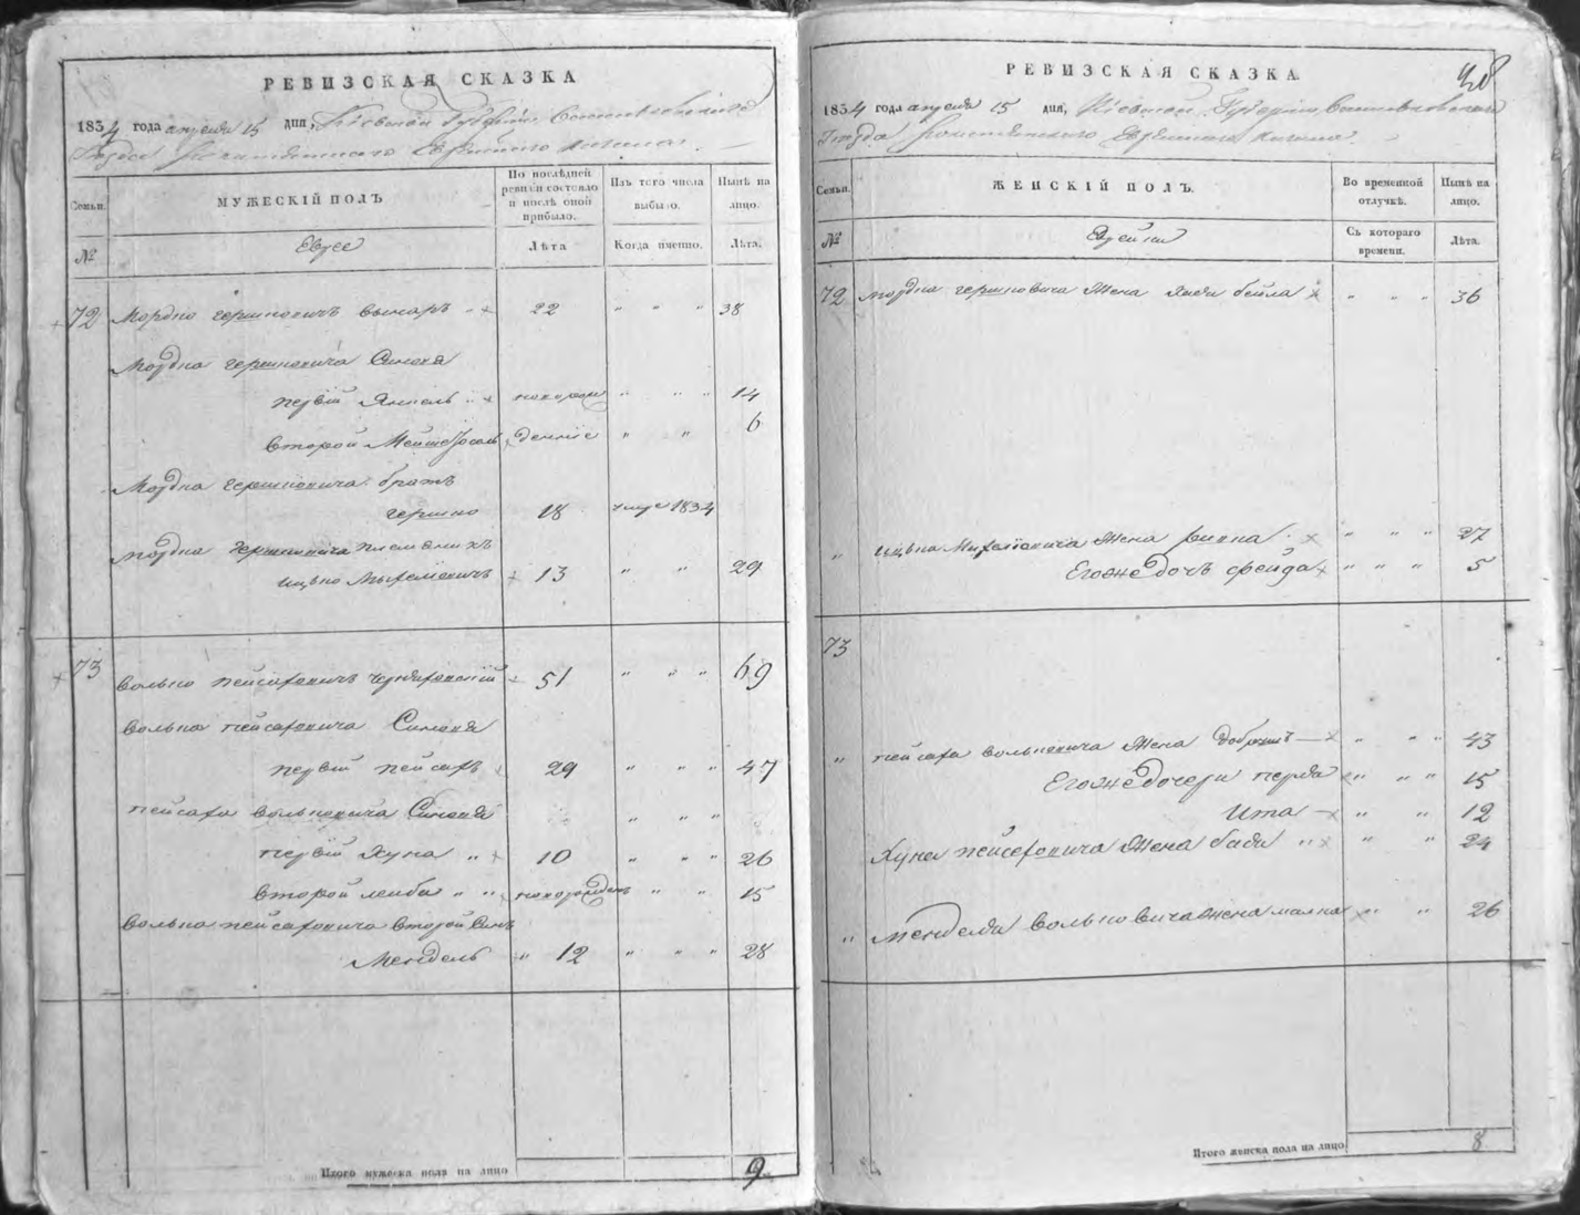 РЕВИЗСКАЯ СКАЗКА
1834 года апреля 15 дня, Кіевской Губерніи
Еврейского
Семьи.
МУЖЕСКІЙ ПОЛЪ
По послѣдней ревизіи состояло и послѣ оной прибыло.
Изъ того числа выбыло.
Нынѣ на лицо.
№
Евреи
Лѣта
Когда именно.
Лѣта.
72 Мордко Гершковичъ 22 " " " 38
Мордка Гершковича Сыновя
первій Янкель " новорож " " " 14
второй Мейше Йосель денніе " " 6
Мордка Гершковича братъ
Гершко 18 1834
Мордка Гершковича племеникъ
Ицько 13 " " 29
73 Волько Пейсаховичъ 51 " " " 69
Волька Пейсаховича Сыновя
первій Пейсахъ 29 " " " 47
Пейсаха Вольковича Сыновя " " "
первій Хуна " 10 " " " 26
второй Лейба " " новорожден " " 15
Волька Пейсаховича второй Сынъ
Мендель " 12 " " " 28
Итого мужеска пола на лицо 9
РЕВИЗСКАЯ СКАЗКА.
1834 года апреля 15 дня, Кіевской Губерніи
Еврейского
Семьи.
ЖЕНСКІЙ ПОЛЪ.
Во временной отлучкѣ.
Нынѣ на лицо.
№
Еврейки
Съ котораго времени.
Лѣта.
72 Мордка Гершковича Жена Хая Бейла " " " 36
" Ицька Жена Ривка " " " 27
Егоже дочъ Фейда " " " 5
73
" Пейсаха Вольковича Жена Добрышъ " " " 43
Егоже дочери Перля " " " 15
Ита " " 12
Хуна Пейсаховича Жена Бася " " " 24
" Менделя Вольковича жена Малка " " 26
Итого женска пола на лицо 8